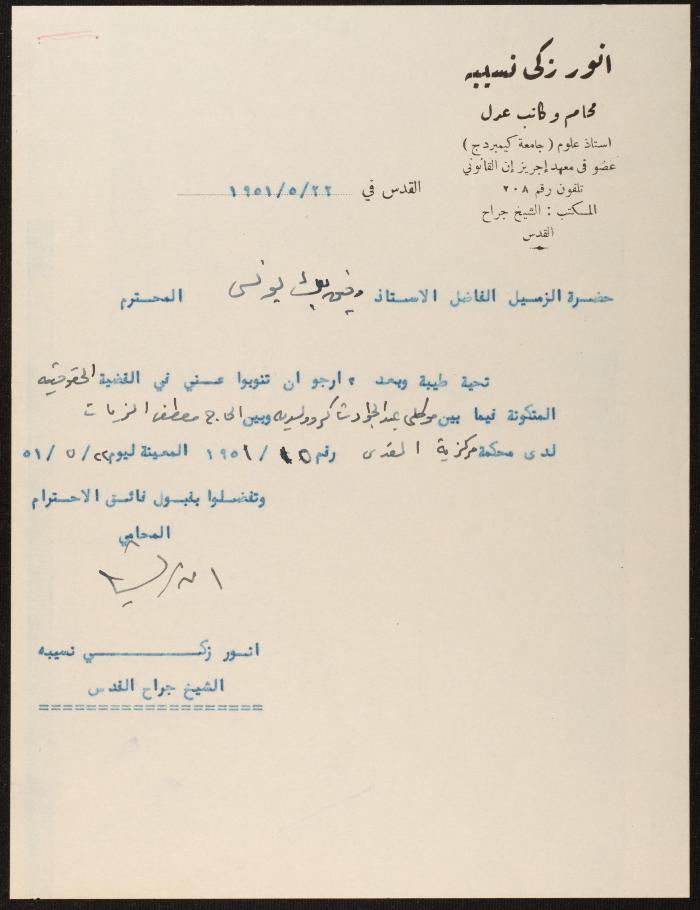 انور زكي نسيبه
محام وكاتب عدل
استاذ علوم (جامعة كيمبردج)
عضو في معهد إجريز إن القانوني
تلفون رقم ٢٠٨
المكتب : الشيخ جراح
القدس
القدس في ١٩٥١/٥/٢٢
حضرة الزميل الفاضل الاستاذ يونس المحترم
تحية طيبة وبعد ، ارجو ان تنوبوا عني في القضية الحقوقيه
المتكونة فيما بين موكلي عبد الجواد شاكر ووالديه وبين الحاج مصطفى الزيات
لدى محكمة مركزية القدس رقم ١٥ / ١٩٥١ المعينة ليوم ٢٢ / ٥ / ٥١
وتفضلوا بقبول فائق الاحترام
المحامي
انور زكــي نسيبه
الشيخ جراح القدس